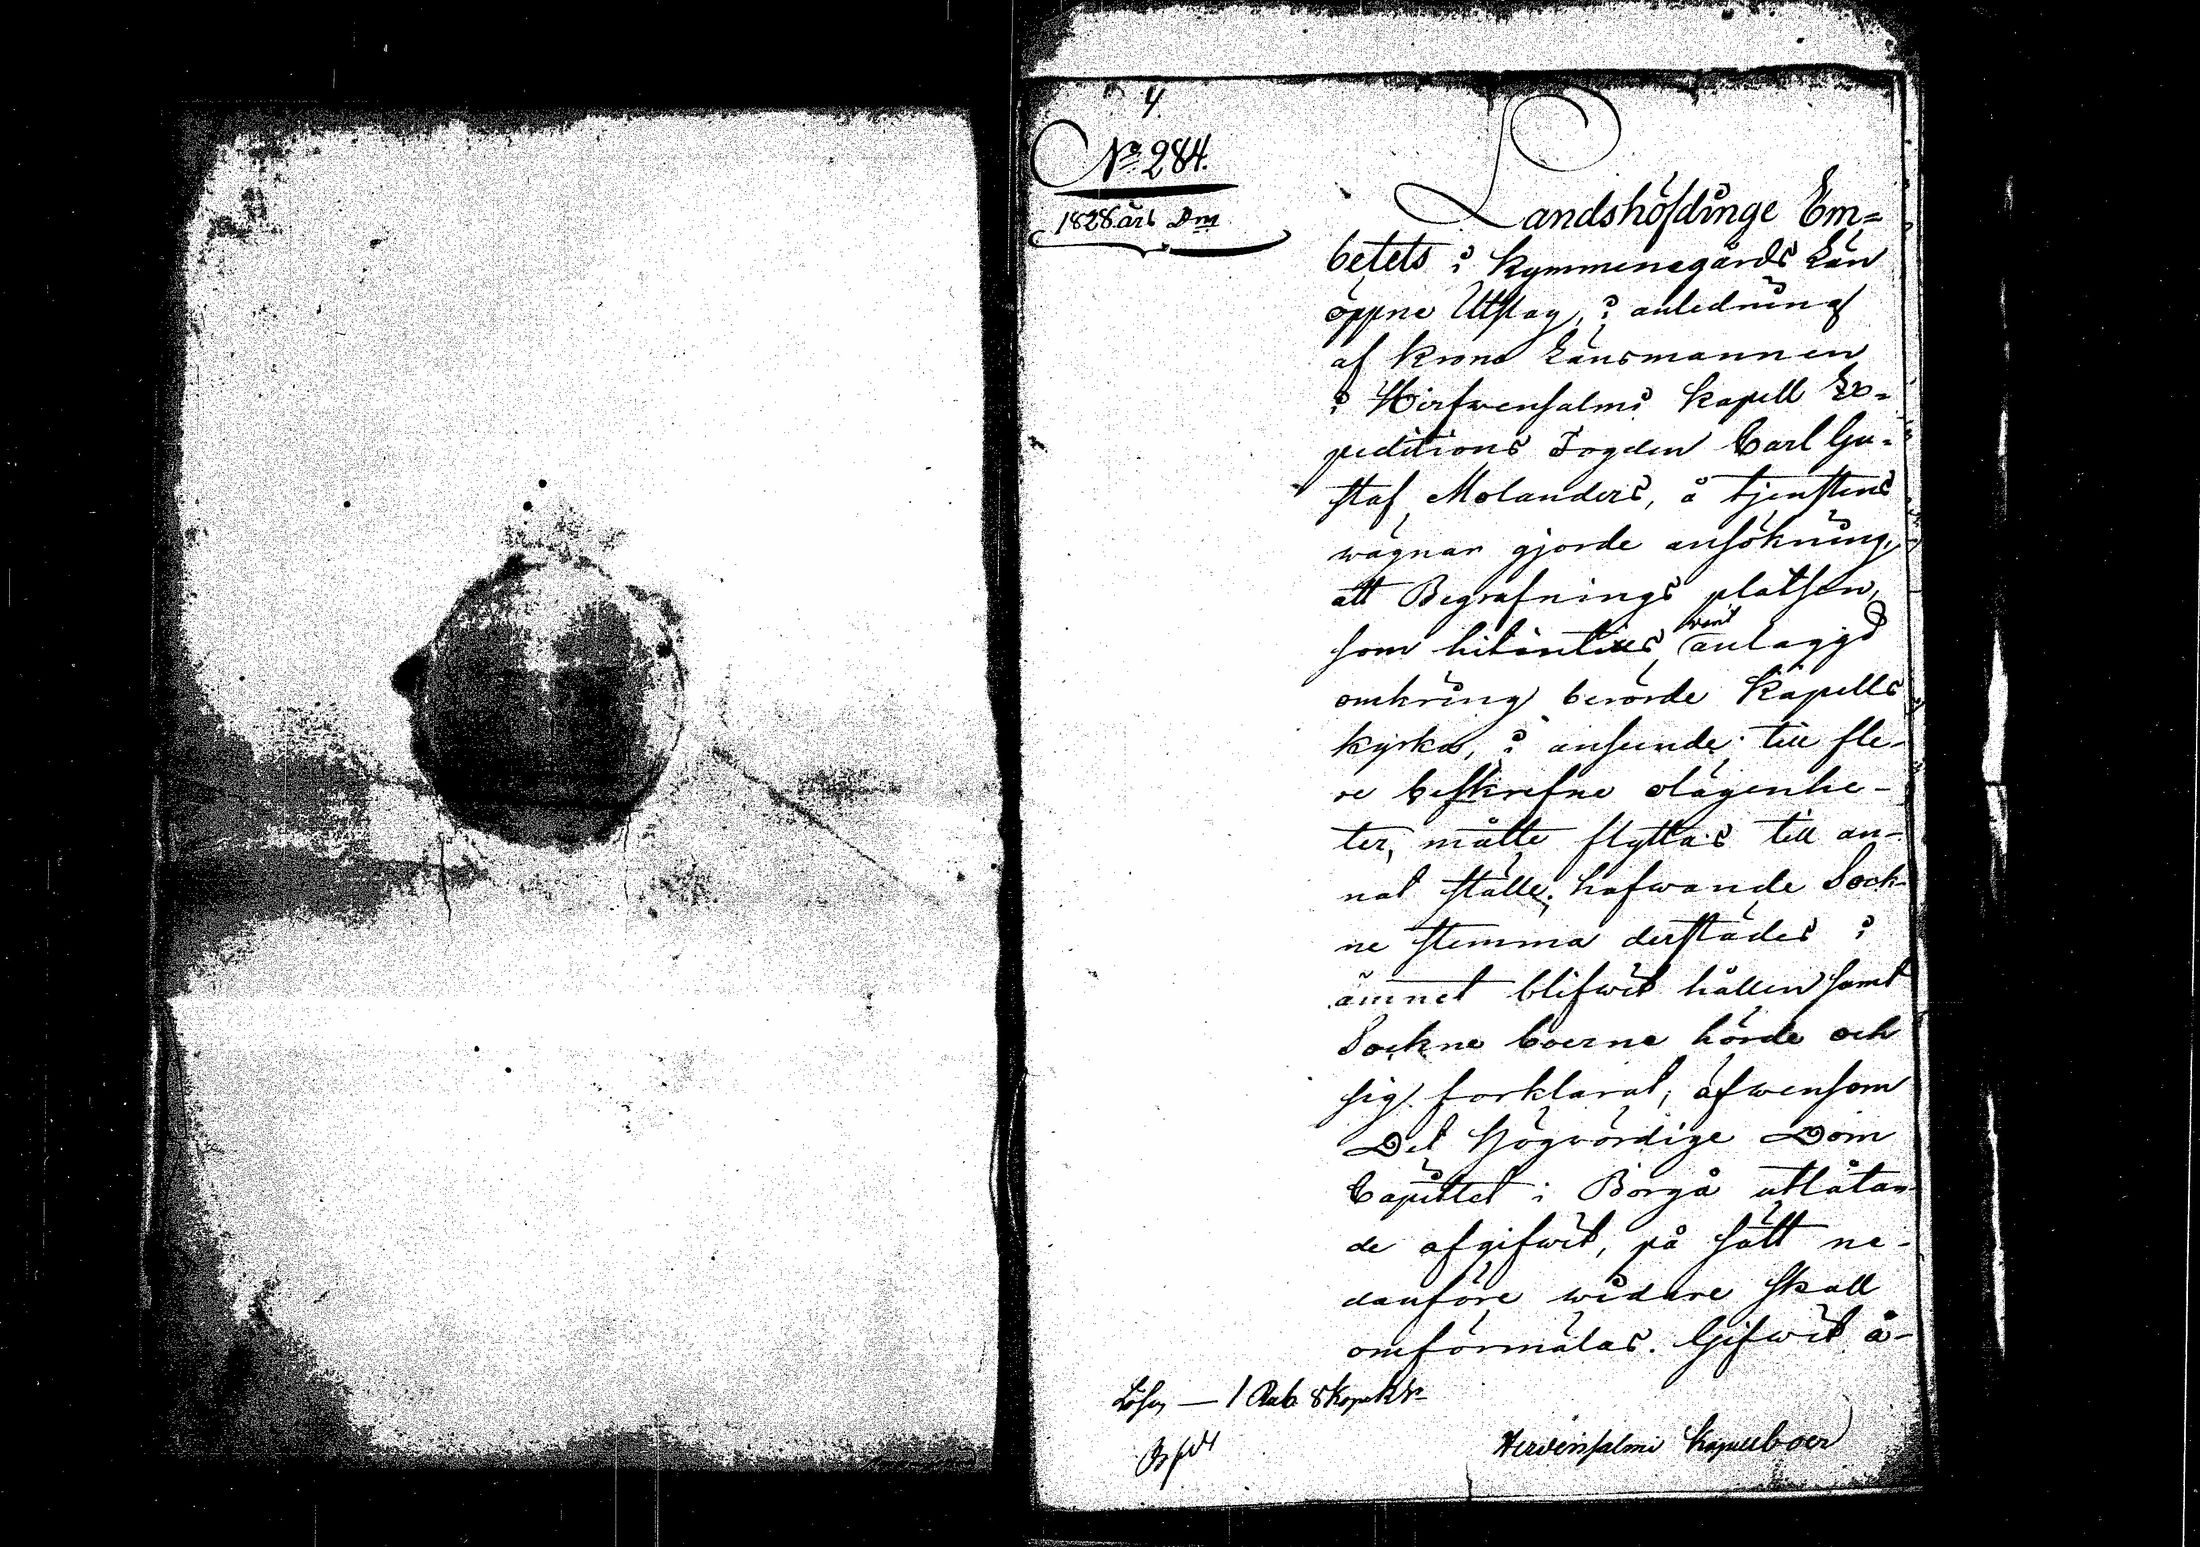 4.
No 284.
1828 års Dm
Landshöfdinge Em=
betets i Kymmenegårds Län
öppne Utslag, i anledning
af Krono Länsmannen
i Hirfwensalmi Kapell Ex-
peditions Fogden Carl Gu-
staf Molanders, å tjenstens
wägnar gjorde ansökning,
att Begrafnings platsen,
som hitintils warit anlaggd
omkring berörde Kapells
kyrka, i anseende till fle-
re beskrefne olägenhe-
ter, måtte flyttas till an-
nat ställe; hafwande Sock-
ne stemma derstädes i
ämnet blifwit hållen samt
Sockne boerne hörde och
sig forklarat, äfwensom
Det Högvördige Dom
Capitlet i Borgå utlåtan-
de afgifwit, på sätt ne-
danföre widare skall
omförmälas. Gifwit å-
Lösen — 1 Rub. 8 Kopek Sr
Hirvensalmi Kapellboer